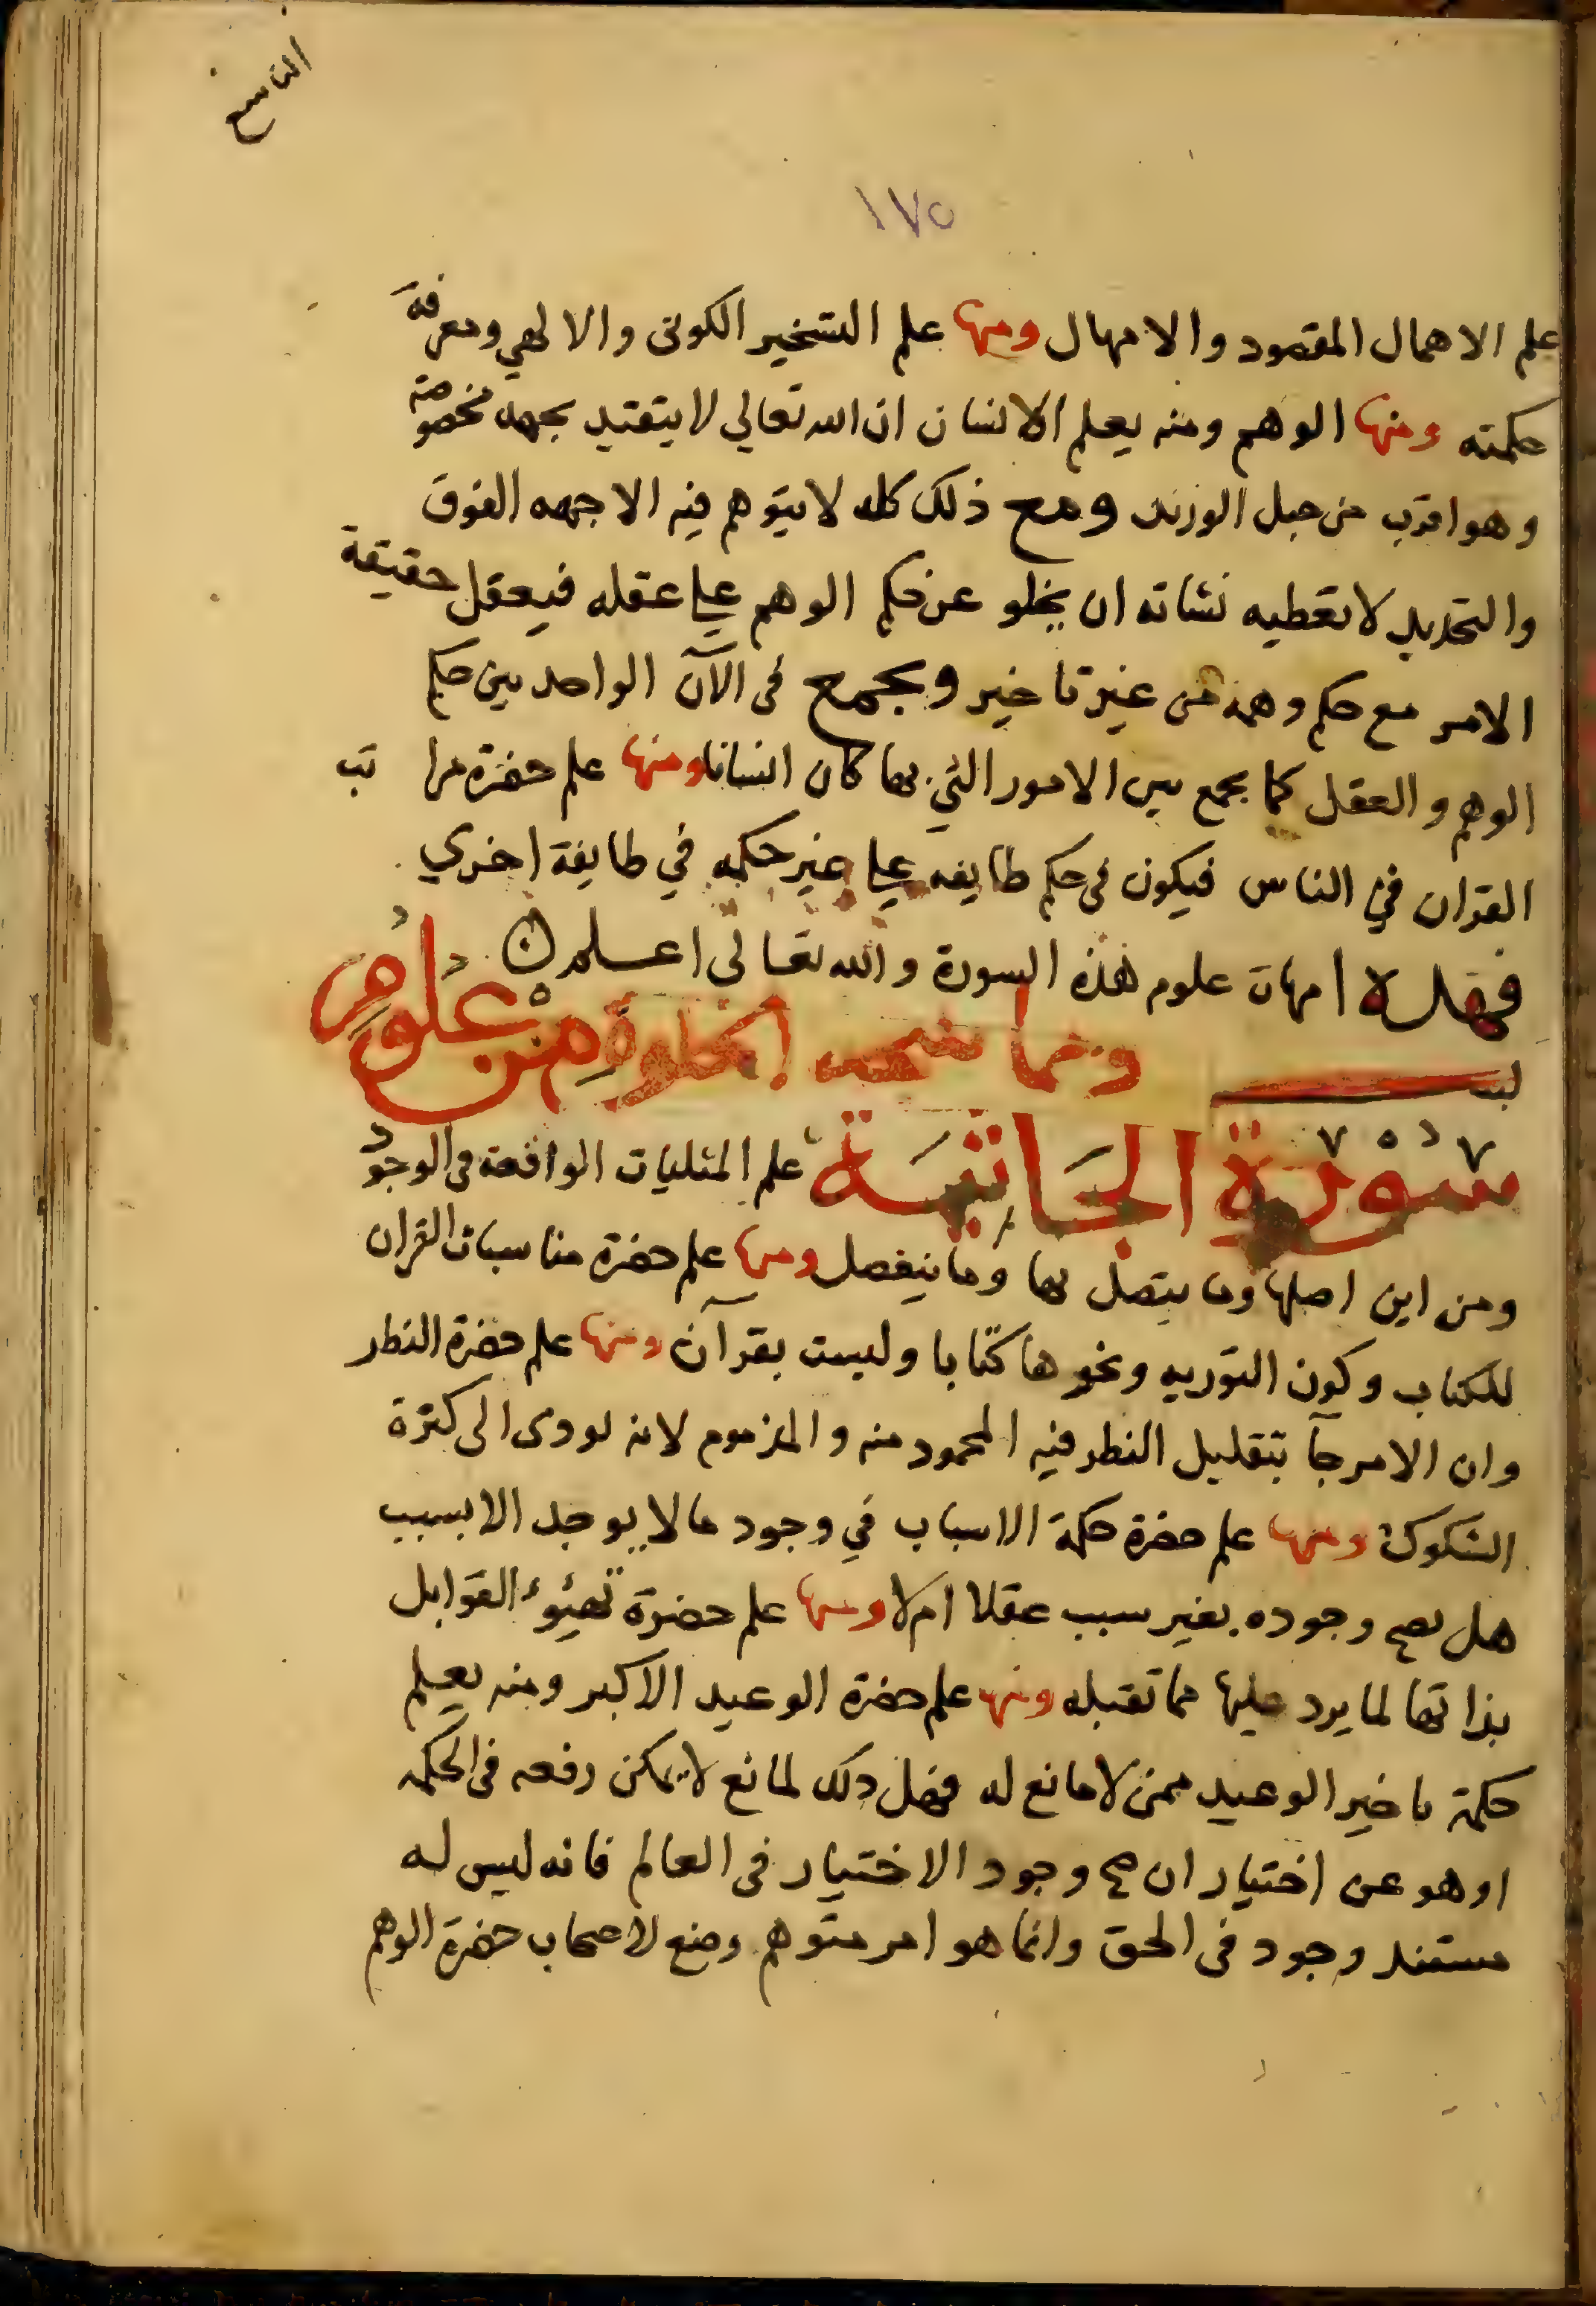 التاسع
١٧٥
علم الاهمال المقصود والامهال ومنها علم التسخير الكونى والالهي ومعرفة
حكمته ومنها الوهم ومنه يعلم الانسان ان الله تعالي لا يتقيد بجهه مخصوصة
وهو اقرب من حبل الوريد ومع ذلك كله لا يتوهم فيه الا جهه الفوق
والتحديد لا تعطيه نشاته ان يخلو عن حكم الوهم علي عقله فيعقل حقيقة
الامر مع حكم وهمه من غير تاخير ويجمع فى الآن الواحد بين حكم
الوهم والعقل كما يجمع بين الامور التي بها كان انسانا ومنها علم حضرة مراتب
القران في الناس فيكون فى حكم طايفه علي غير حكمه في طايفة اخري
فهذه امهات علوم هذه السورة والله تعالى اعلم
ومما الخلوة من علوم
سورة الجاثية علم المثليات الواقعة فى الوجود
ومن اين اصلها وما يتصل بها وما ينفصل ومنها علم حضرة مناسبات القران
للكتاب وكون التوريه ونحوها كتابا وليست بقرآن ومنها علم حضرة النظر
وان الامر جآ بتقليل النظر فيه المحمود منه والمذموم لانه يودى الى كثرة
الشكوك ومنها علم حضرة حكمة الاسباب في وجود ما لا يوجد الا بسبب
هل يصح وجوده بغير سبب عقلا ام لا ومنها علم حضرة تهيؤ القوابل
بذاتها لما يرد عليها مما تقبله ومنها علم حضرة الوعيد الاكبر ومنه يعلم
حكمة تاخير الوعيد ممن لا مانع له فهل ذلك لمانع لا يمكن رفعه فى الحكمه
او هو عن اختيار ان صح وجود الاختيار فى العالم فانه ليس له
مستند وجود فى الحق وانما هو امر متوهم وضع لاصحاب حضرة الوهم